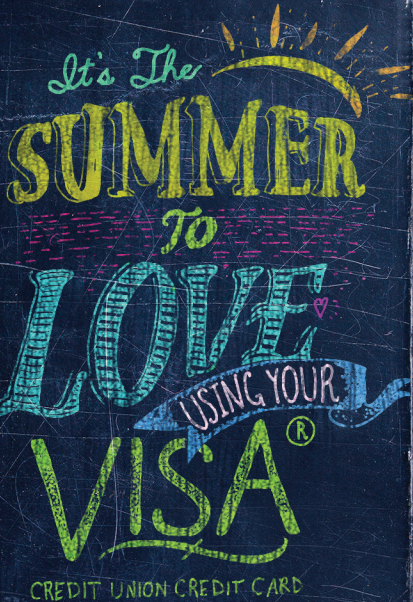 It's The
SUMMER
TO
LOVE
USING YOUR
VISA®
CREDIT UNION CREDIT CARD